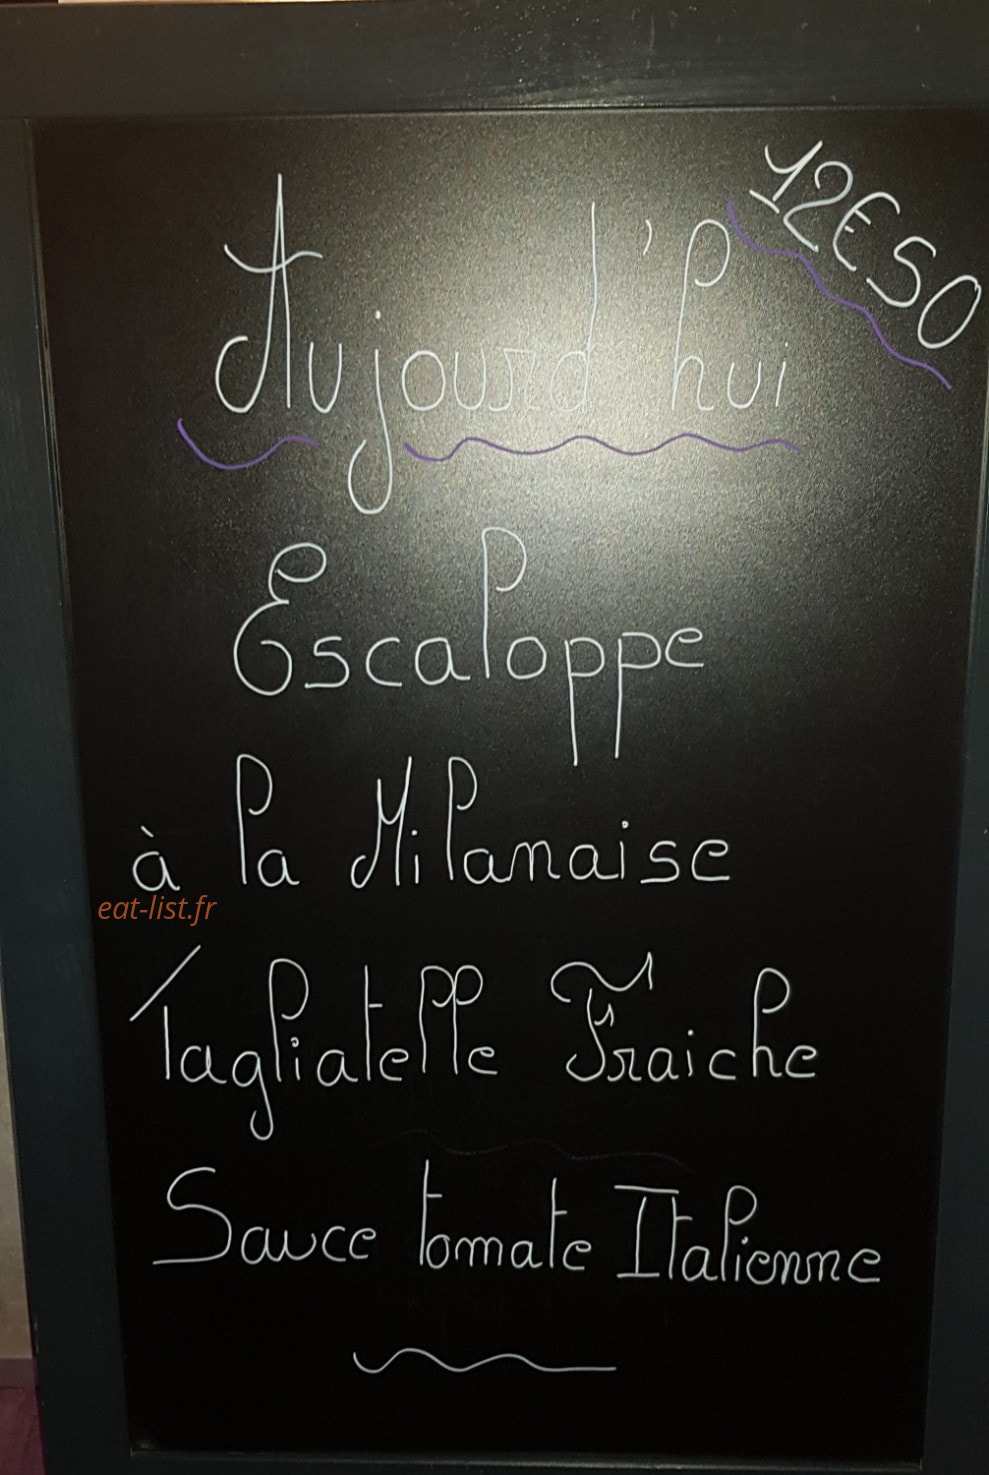 12€50
Aujourd'hui
Escaloppe
à la Milanaise
eat-list.fr
Tagliatelle Fraiche
Sauce tomate Italienne